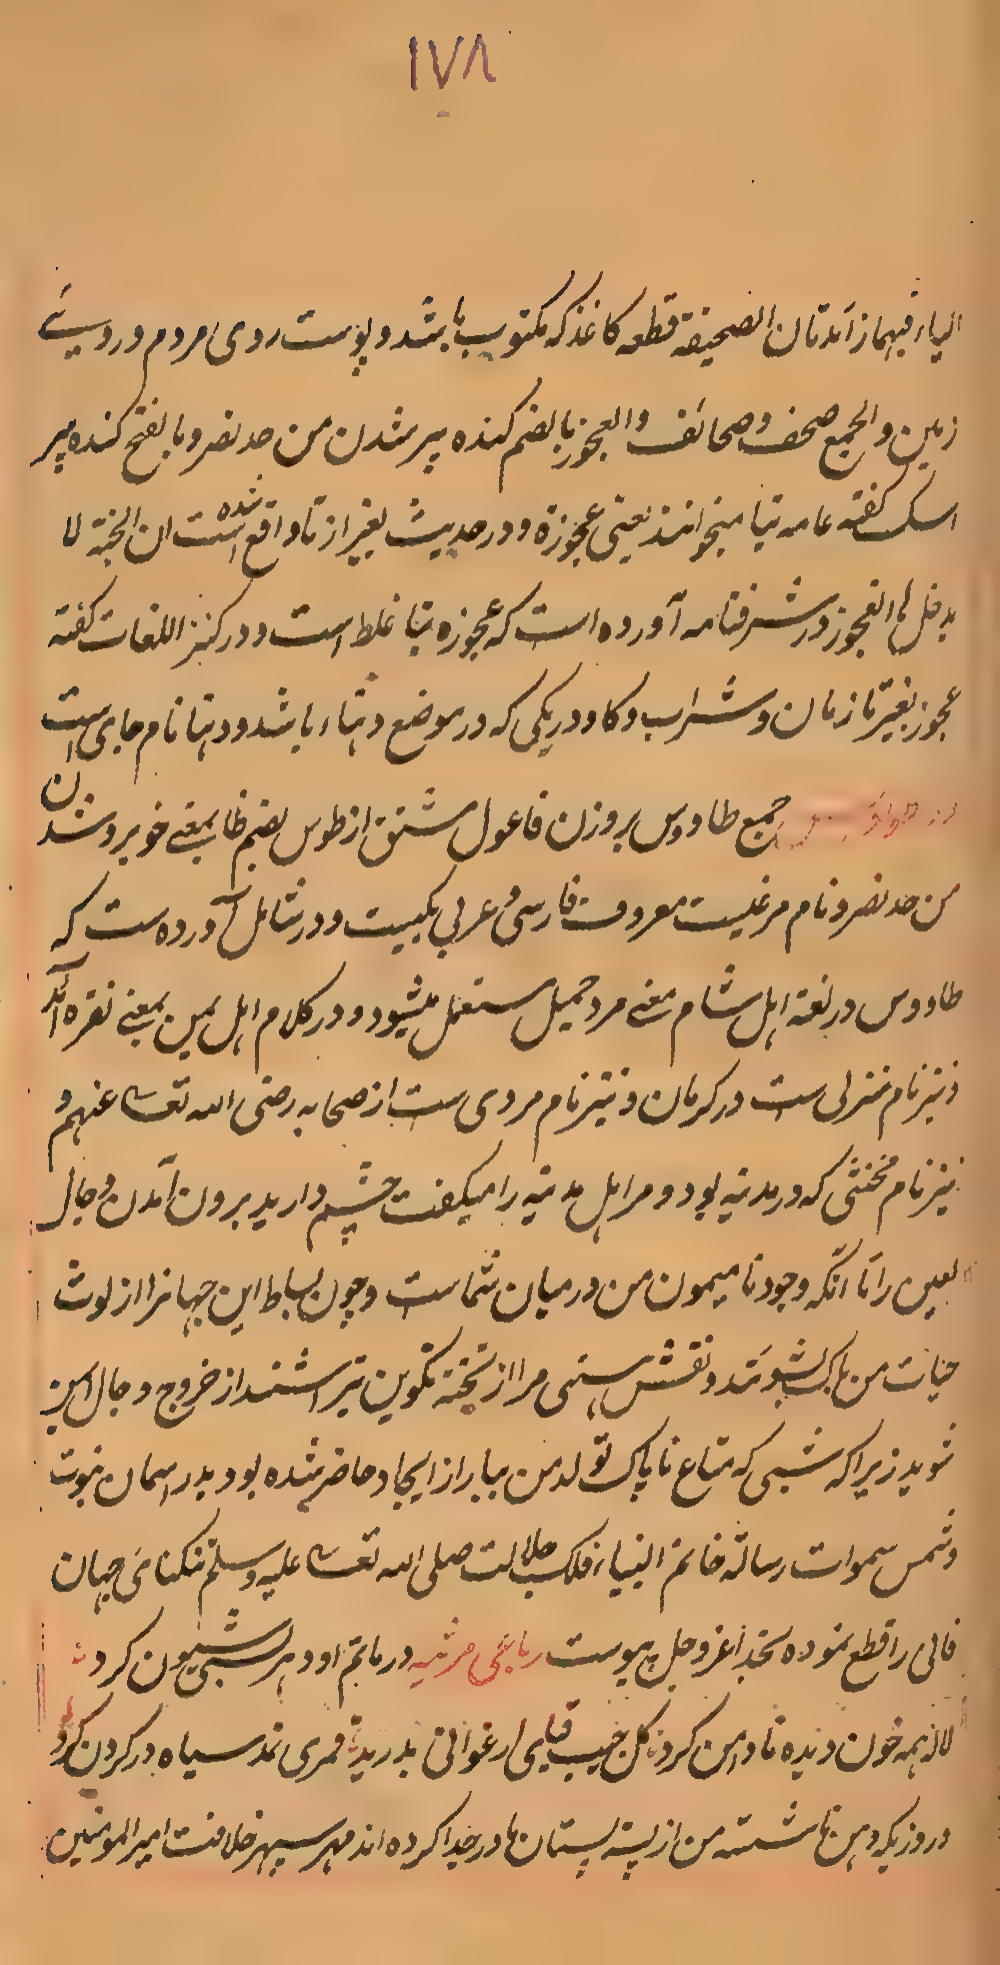 ١٧٨
الیاء فیهما زائدتان الصحیفة قطعه کاغذ که مکتوب باشد و پوست روی مردم و روی
زمین و الجمع صحف و صحائف و العجوز بالضم کنده پیر شدن من حد نصر و بالفتح کنده پیر
اسک گفته عامه بتا میخوانند یعنی عجوزة و در حدیث بغیر از تا واقع شده است ان الجنة لا
یدخل ها العجوز در شرفنامه آورده است که عجوزه بتا غلط است و در کنز اللغات گفته
عجوز بغیر تا زنان و شراب و کاو و ریکی که در موضع دهناء باشد و دهنا نام جای است
جمع طاووس بروزن فاعول مشتق از طوس بضم طا بمعنے خوبرو شدن
من حد نصر و نام مرغیست معروف فارسی و عربی یکیست و در شامل آورده ست که
طاووس در لغة اهل شام بمعنے مرد جمیل مستعمل میشود و در کلام اهل یمن بمعنے نقره آمد
و نیز نام منزلی ست در کرمان و نیز نام مردی ست از صحابه رضی الله تعالے عنهم و
نیز نام مخنثی که در مدینه بود و مر اهل مدینه را میکفت چشم دارید برون آمدن دجال
لعین را تا آنکه وجود نامیمون من در میان شماست و چون بساط این جهانرا از لوث
حیات من پاک بشویند و نقش هستی مرا از تخته تکوین بتراشند از خروج دجال ایمن
شوید زیرا که شبی که متاع ناپاک تولد من ببازار ایجاد حاضر شده بود بدر اسمان نبوت
و شمس سموات رسالة خاتم انبیاء فلک جلالت صلی الله تعالے علیه وسلم تنکنائ جهان
فانی را قطع نموده بخدا عز و جل پیوست رباعی مرثیه در ماتم او دهر بسی شیون کرد
لاله همه خون دیده تا دامن کرد کل جیب قبای ارغوانی بدرید قمری نمد سیاه در کردن کرد
در روزیکه دهن ناشسته من از پسته پستان مادر جدا کرده اند مهر سپهر خلافت امیر المومنین